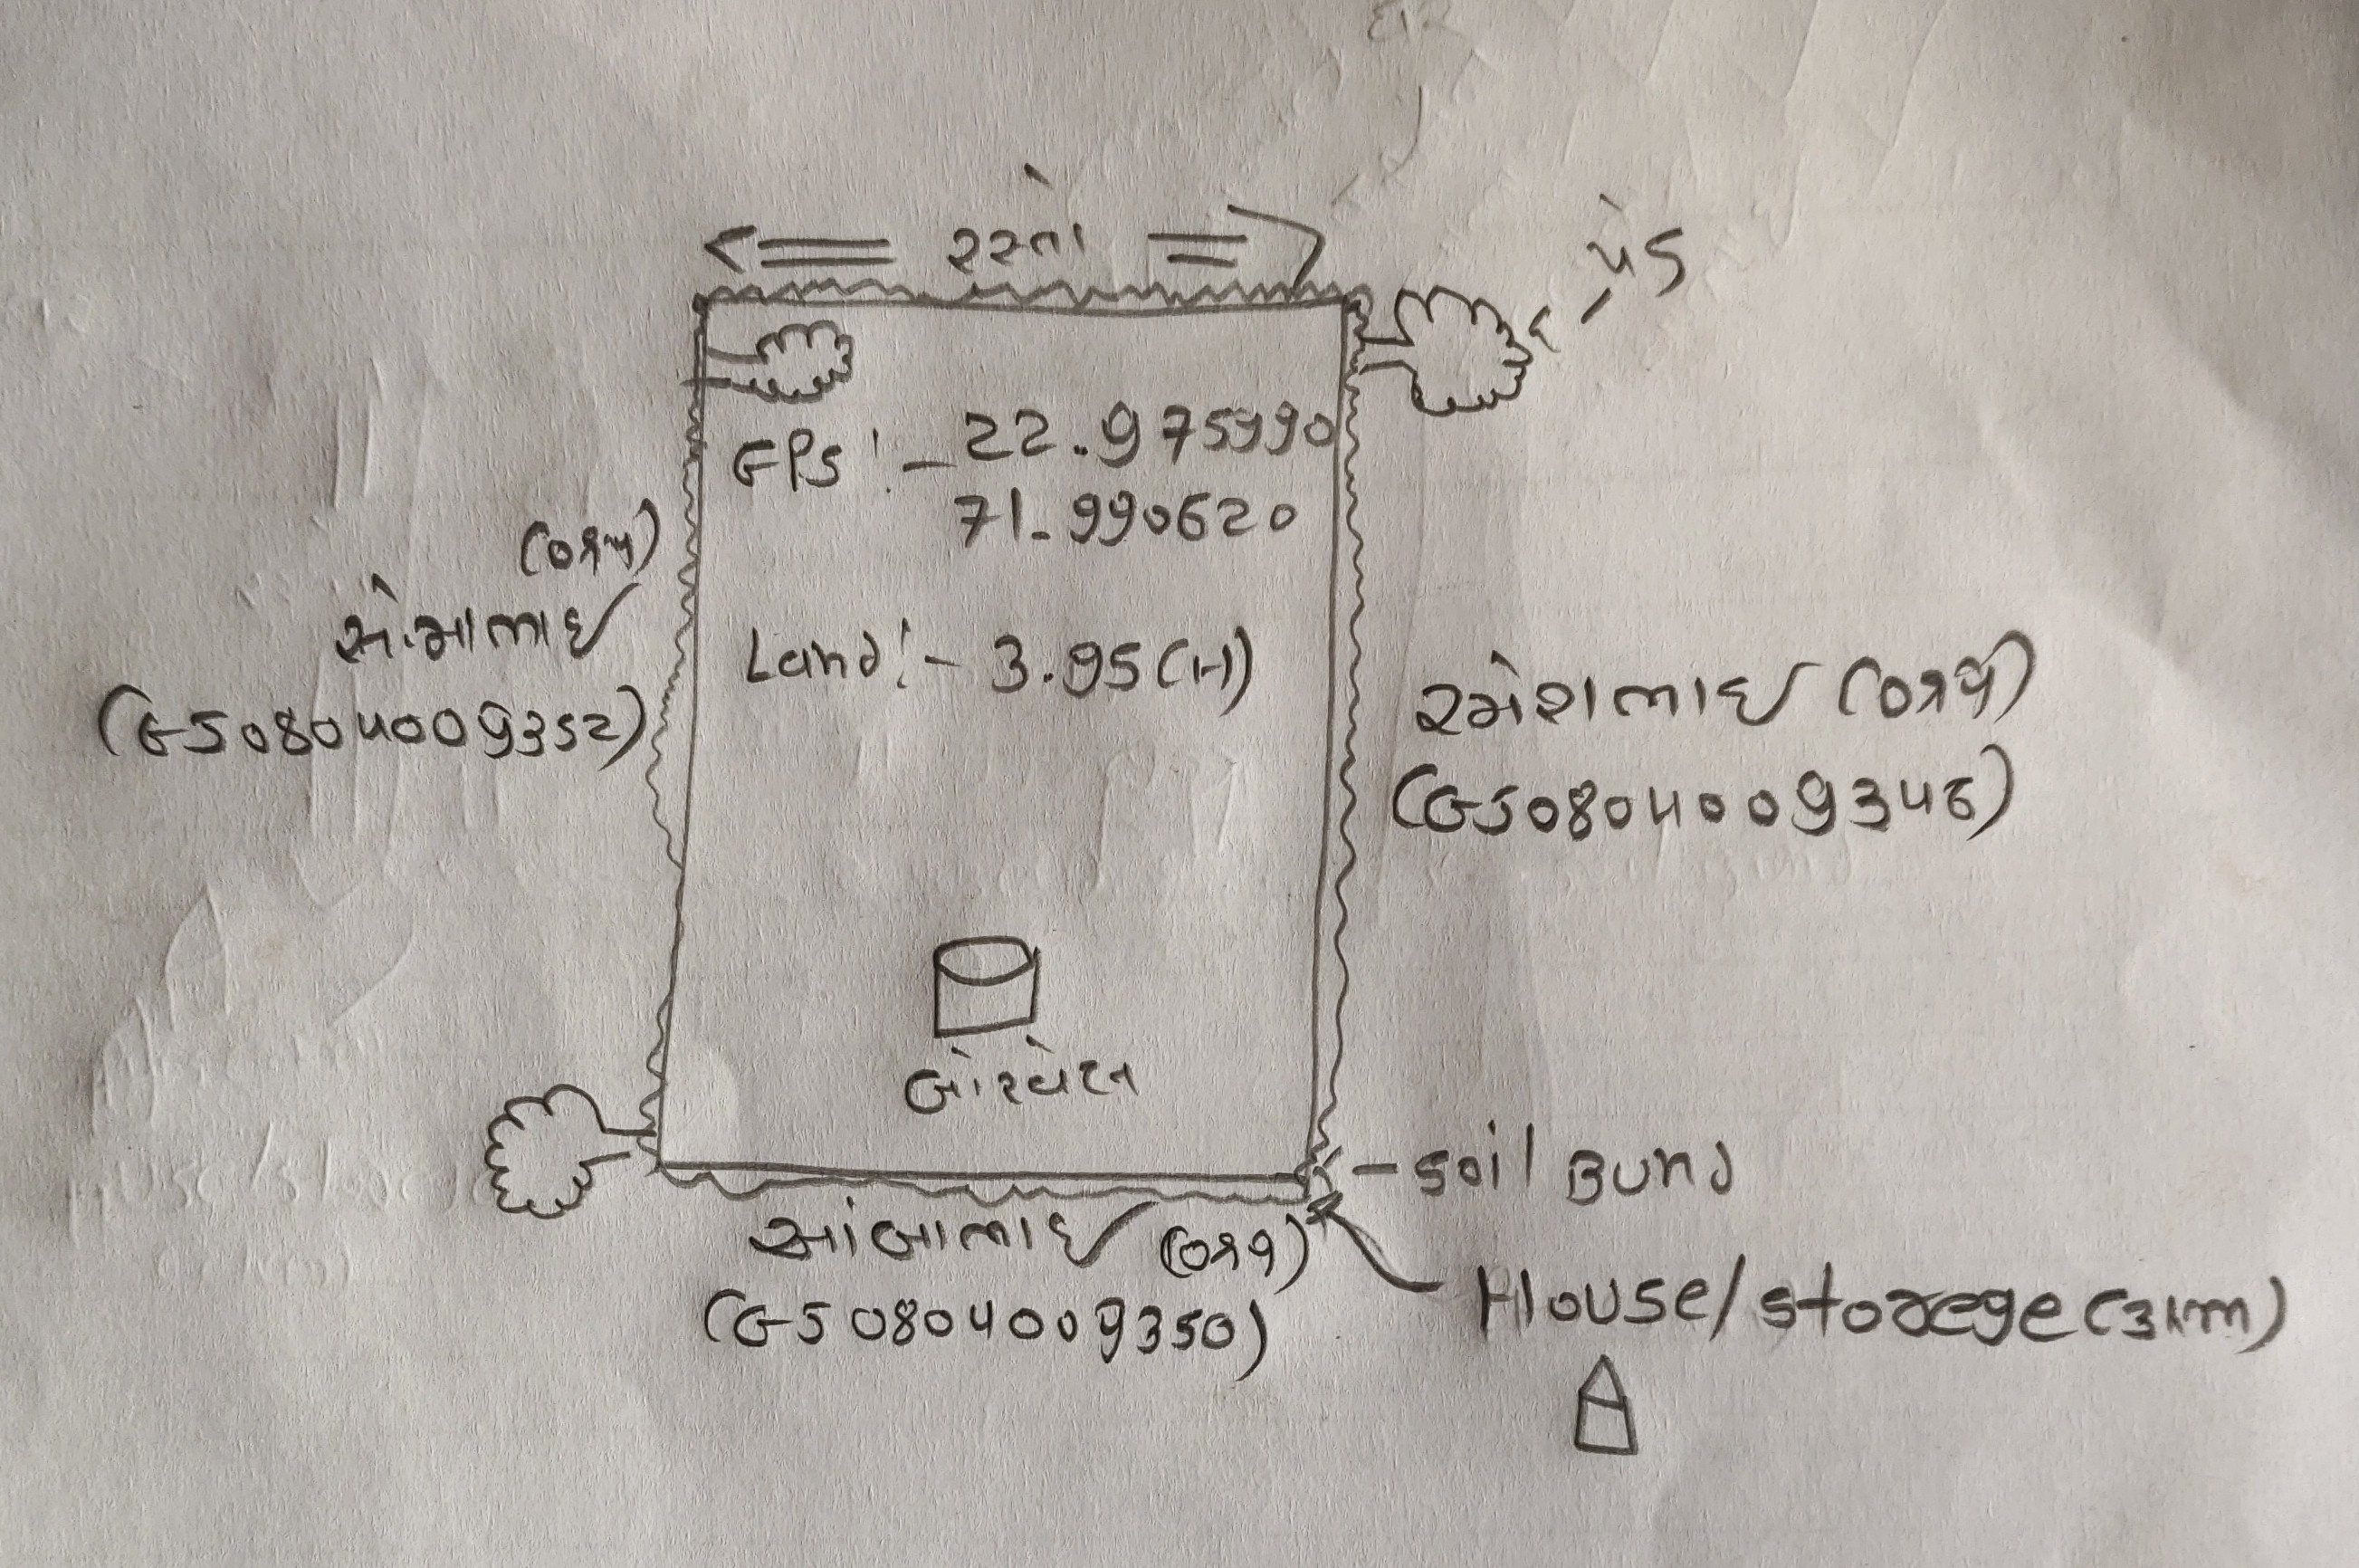 રસ્તો
પેડ
GPS:- 22.975990
71.990620
(ORG)
સોમાભાઇ
(GS0804009352)
Land:- 3.95(H)
રમેશભાઇ (ORG)
(GS0804009346)
બોરવેલ
soil Bund
આંબાભાઇ (ORG)
(GS0804009350)
House/storege (3km)